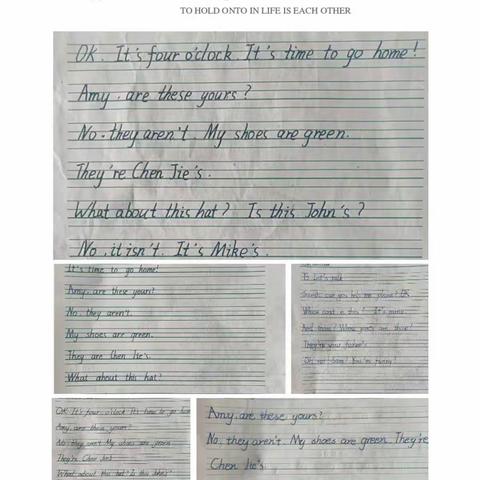 TO HOLD ONTO IN LIFE IS EACH OTHER
OK. It's four o'clock. It's time to go home!
Amy. are these yours?
No. they aren't. My shoes are green.
They're Chen Jie's.
What about this hat? Is this John's?
No, it isn't. It's Mike's.
It's time to go home!
Amy. are these yours?
No. they aren't.
My shoes are green.
They are Chen Jie's.
What about this hat?
Let's talk
you help me please? OK
is this? It's mine.
And these? Whose pants are these?
They're your father's
Oh, no! Sam! You're funny!
OK. It's four o'clock. It's time to go home
Amy. are these yours?
No. they aren't. My shoes are green.
They're Chen Jie's
What about this hat? Is this John's?
Amy. are these yours?
No. they aren't. My shoes are green. They're
Chen Jie's.